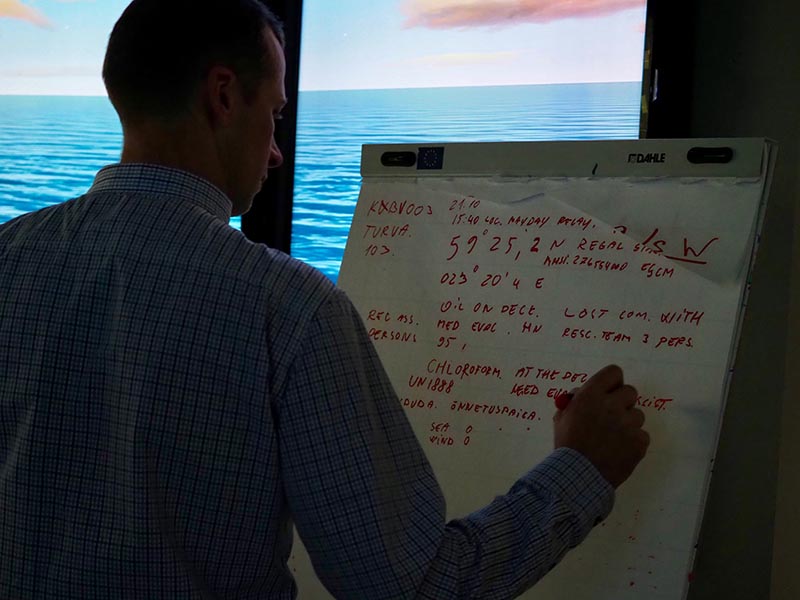 DAHLE
KXBV003 21.10
15:40 LOC. MAYDAY RELAY.
TURVA. 59°25,2 N REGAL S/S W
103.
MMSI. 276554000 ESCM
023° 20' 4 E
OIL ON DECK. LOST COM. WITH
REC ASS. MED EVAC. MN RESC. TEAM 3 PERS.
PERSONS 95,
CHLOROFORM. AT THE DEC
UN1888 NEED
ÕNNETUSPAIGA.
SEA 0
WIND 0